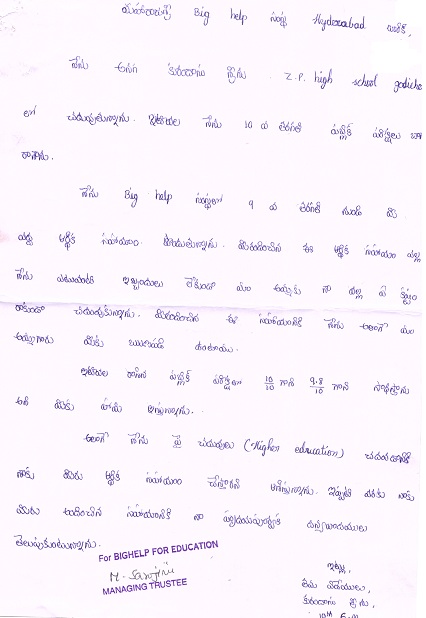 Big help సంస్థ Hyderabad వారికి,
నేను అనగా కురందాసు శ్రీను. Z.P. high school
లో చదువుతున్నాను. ఇటీవల నేను 10 వ తరగతి పబ్లిక్ పరీక్షలు బాగా
రాశాను.
నేను Big help సంస్థలో 9 వ తరగతి నుండి మీ
వద్ద ఆర్థిక సహాయం పొందుతున్నాను. మీరందించిన ఈ ఆర్థిక సహాయం వల్ల
నేను ఎటువంటి ఇబ్బందులు లేకుండా మా అమ్మకు నా వల్ల ఏ కష్టం
రాకుండా చదువుకున్నాను. మీరందించిన ఈ సహాయానికి నేను అలాగే మా
అమ్మగారు మీకు ఋణపడి ఉంటాము.
ఇటీవల రాసిన పబ్లిక్ పరీక్షలలో 10/10 గాని 9.8/10 గాని సాధిస్తాను
అని మీకు హామీ ఇస్తున్నాను.
అలాగే నేను పై చదువులు (Higher education) చదవడానికి
నాకు మీరు ఆర్థిక సహాయం చేస్తారని ఆశిస్తున్నాను. ఇప్పటి వరకు నాకు
మీరు అందించిన సహాయానికి నా హృదయపూర్వక ధన్యవాదములు
తెలుపుకుంటున్నాను.
For BIGHELP FOR EDUCATION
MANAGING TRUSTEE
ఇట్లు,
తమ విధేయులు,
కురందాసు శ్రీను,